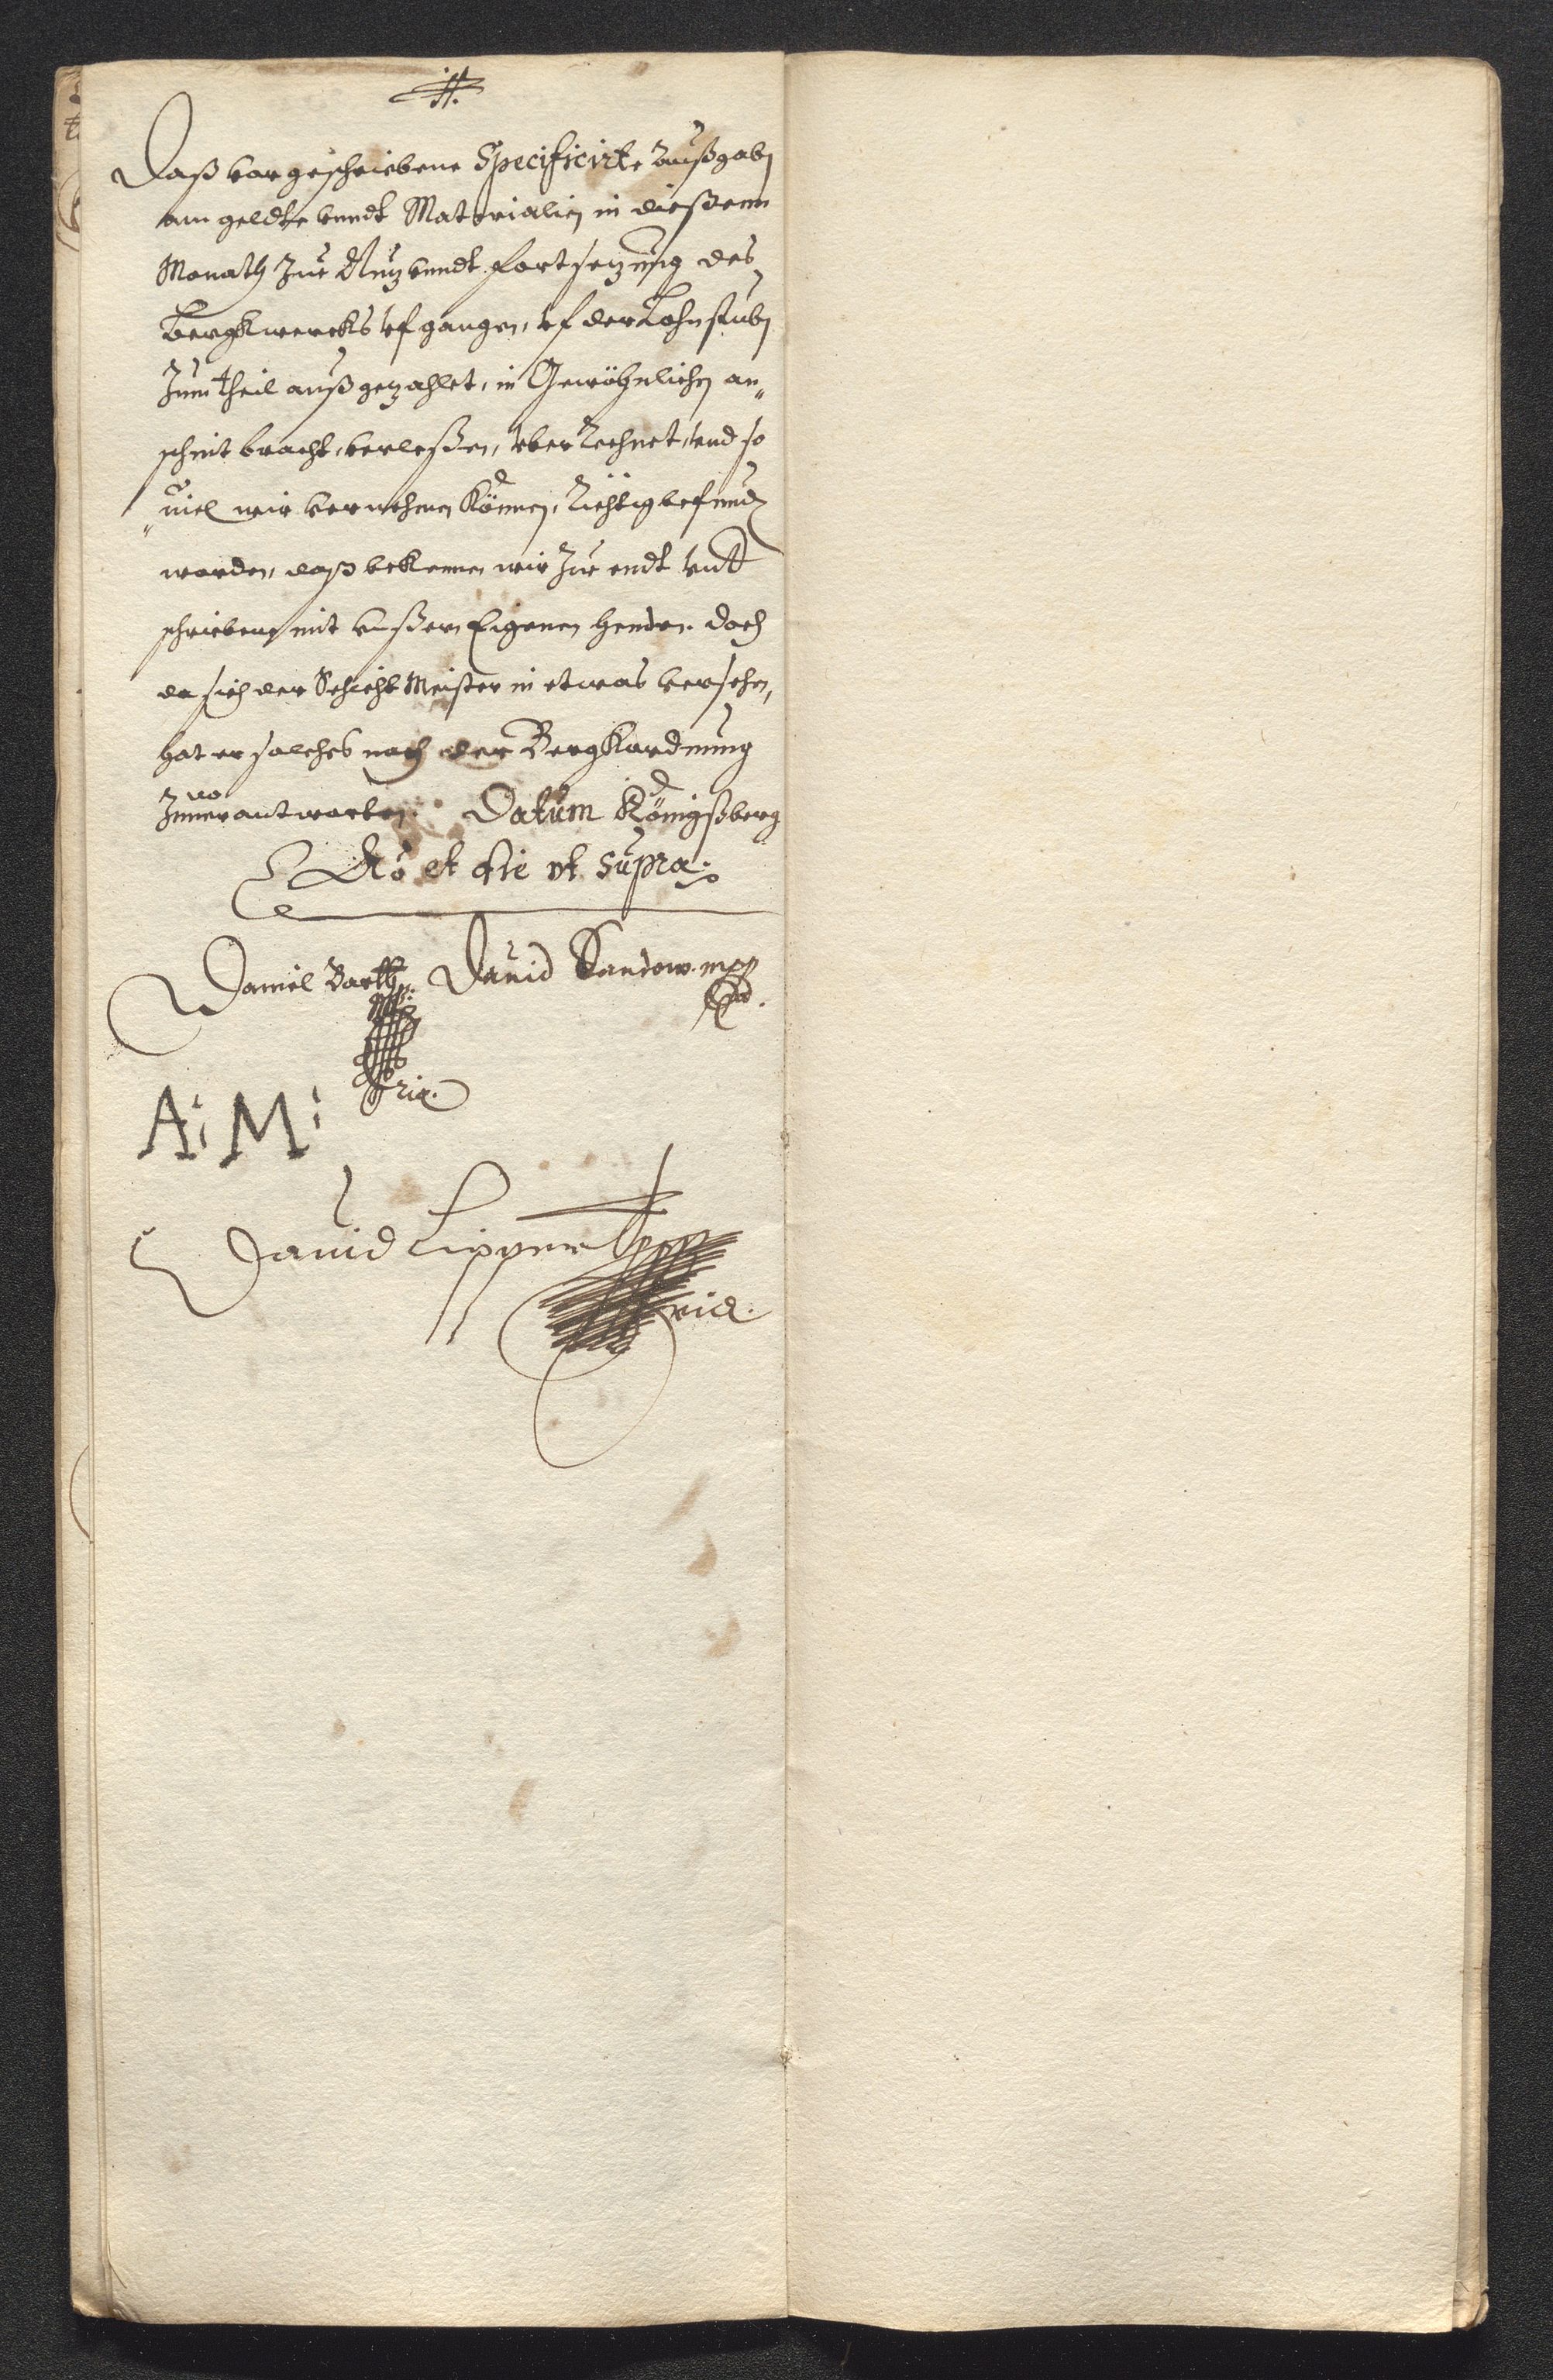 Daß vorgeschriebene Specificirte Außgaben
ann geldte vnndt Materialien in dießem
Monath Zue Nuz vnndt fortsezung des
Bergkwercks vfgangen, vf der Lohnstuben
Zum theil außgezahlet, in Gewöhnlichen an„
schnit bracht, verleßen, vberrechnet, vnd so
„uiel wir vernehmen können, Richtig befunden
worden, daß bekennen wir Zue endt vnter
schrieben mit vnßern Eigenen henden. doch
da sich der Schicht Meister in etwas versehen,
hat er solches nach der Bergkordnung
Zuuerantworten. Datum Königßberg
Ao et die vt supra.
Daniel Barth mpp David Sandow. mpp
ria.
A: M:
Dauid Lippert mpp
ria.